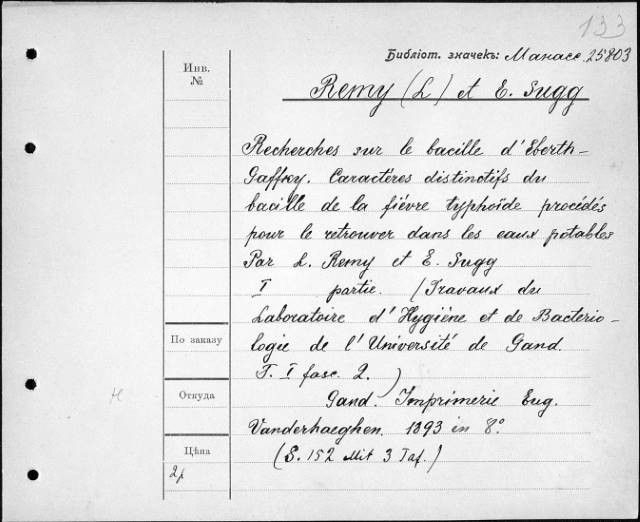 133
Библіот. значекъ: Манасс. 25803
Инв.
№
Remy (L) et E. Sugg
Recherches sur le bacille d'Eberth-
Gaffky. Caractères distinctifs du
bacille de la fièvre typhoïde procédés
pour le retrouver dans les eaux potables
Par L. Remy et E. Sugg
I partie. (Travaux du
Laboratoire d'Hygiène et de Bacterio-
logie de l'Université de Gand.
T. I fasc. 2.)
Gand. Imprimerie Eug.
Vanderhaeghen. 1893 in 8°.
(S. 152 Mit 3 Taf.)
По заказу
Откуда
Цѣна
2р